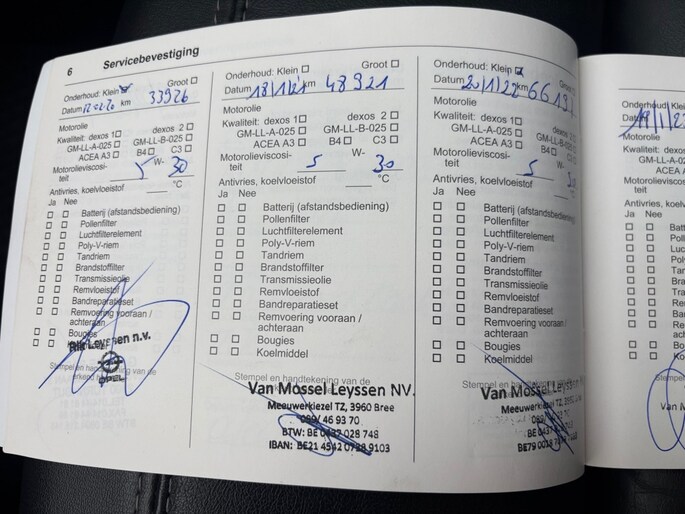 6 Servicebevestiging
Onderhoud: Klein Groot
Datum 12-2-20 km 33926
Motorolie
Kwaliteit: dexos 1 dexos 2
GM-LL-A-025 GM-LL-B-025
ACEA A3 B4 C3
Motorolieviscosi- 5 W- 30
teit
Antivries, koelvloeistof °C
Ja Nee
Batterij (afstandsbediening)
Pollenfilter
Luchtfilterelement
Poly-V-riem
Tandriem
Brandstoffilter
Transmissieolie
Remvloeistof
Bandreparatieset
Remvoering vooraan /
achteraan
Bougies
Rik Leyssen n.v.
OPEL
Onderhoud: Klein Groot
Datum 18/1/21 km 48921
Motorolie
Kwaliteit: dexos 1 dexos 2
GM-LL-A-025 GM-LL-B-025
ACEA A3 B4 C3
Motorolieviscosi- 5 W- 30
teit
Antivries, koelvloeistof °C
Ja Nee
Batterij (afstandsbediening)
Pollenfilter
Luchtfilterelement
Poly-V-riem
Tandriem
Brandstoffilter
Transmissieolie
Remvloeistof
Bandreparatieset
Remvoering vooraan /
achteraan
Bougies
Koelmiddel
Stempel en handtekening van de
Van Mossel Leyssen NV.
Meeuwerkiezel TZ, 3960 Bree
089/ 46 93 70
BTW: BE 0437 028 748
IBAN: BE21 4542 0738 9103
Onderhoud: Klein Groot
Datum 20/1/22 km
Motorolie
Kwaliteit: dexos 1 dexos 2
GM-LL-A-025 GM-LL-B-025
ACEA A3 B4 C3
Motorolieviscosi- 5 W-
teit
Antivries, koelvloeistof
Ja Nee
Batterij (afstandsbediening)
Pollenfilter
Luchtfilterelement
Poly-V-riem
Tandriem
Brandstoffilter
Transmissieolie
Remvloeistof
Bandreparatieset
Remvoering vooraan /
achteraan
Bougies
Koelmiddel
Van Mossel
Meeuwerkiezel TZ,
Onderhoud:
Motorolie
Kwaliteit:
GM-LL
ACEA
Motorolieviscosi-
teit
Antivries, koel
Ja Nee